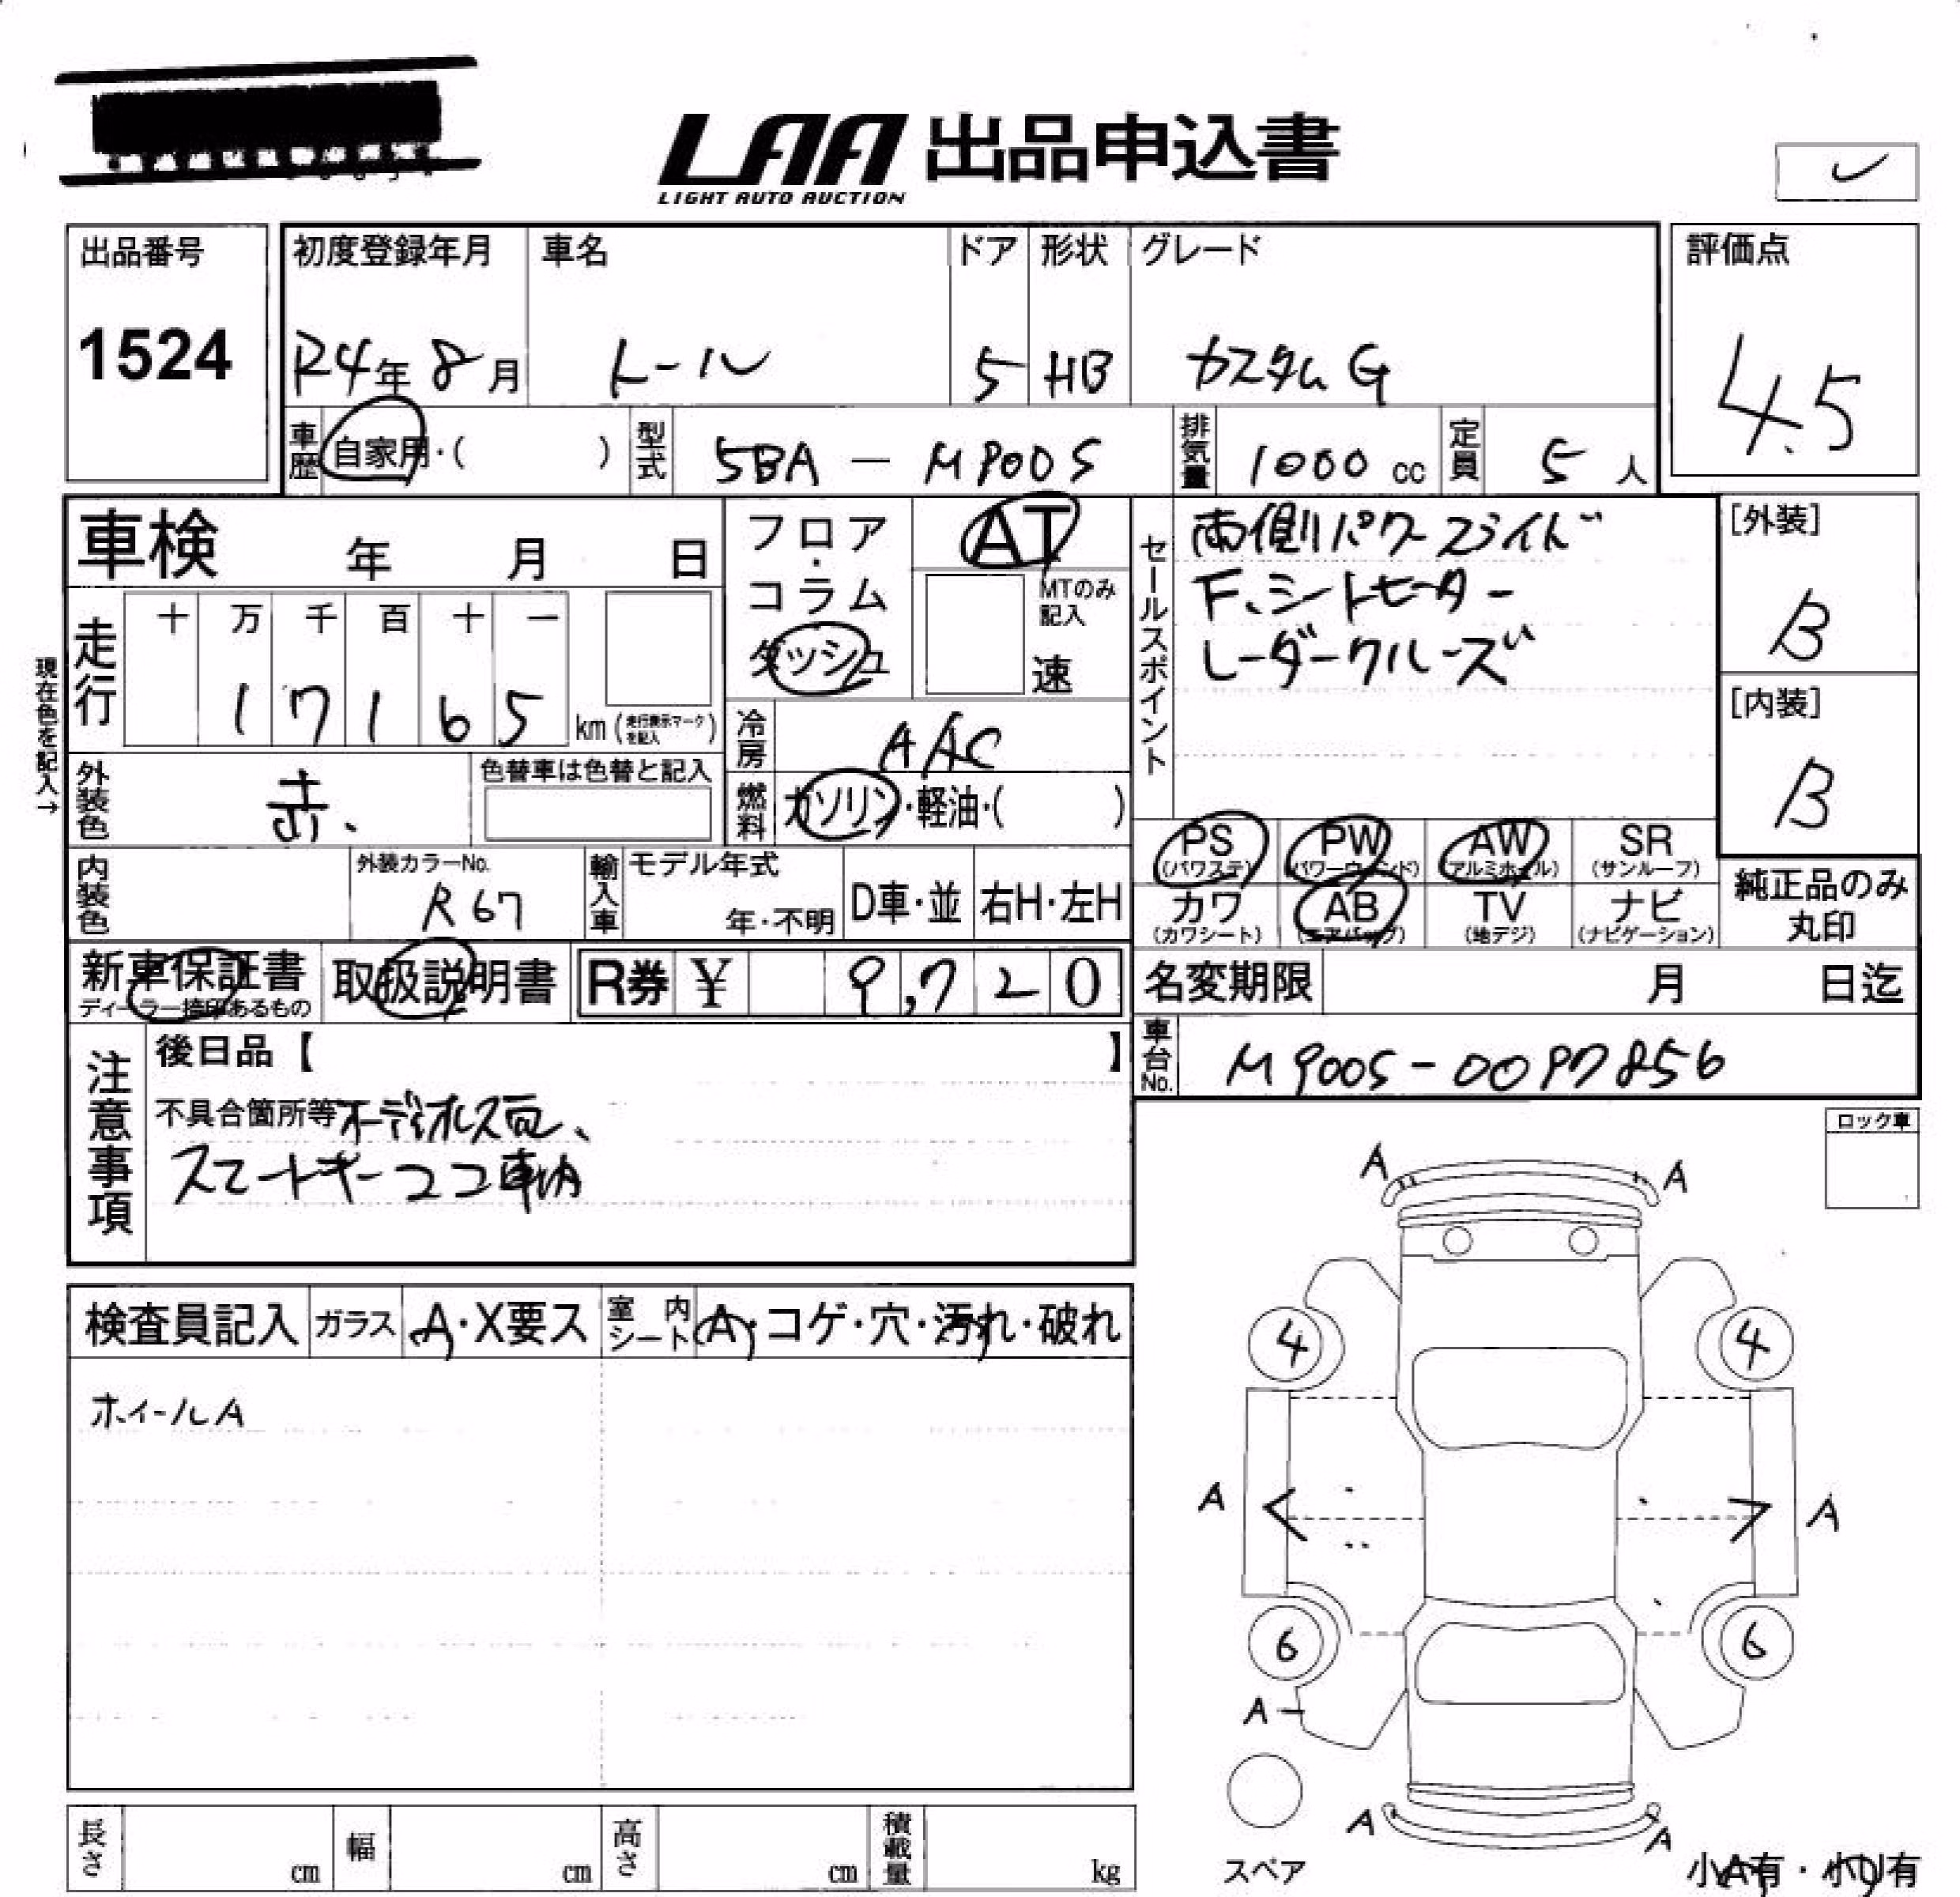 LAA 出品申込書
LIGHT AUTO AUCTION
出品番号
1524
初度登録年月 車名 ドア 形状 グレード
R4年 8月 トール 5 HB カスタムG
評価点
4.5
車歴 自家用・( ) 型式 5BA - M900S 排気量 1000 cc 定員 5 人
車検 年 月 日
フロア・コラム
ダッシュ
AT
MTのみ記入
速
走行 十 万 千 百 十 一
1 7 1 6 5 km (走行表示マークを記入)
現在色を記入→
冷房 AAC
外装色 赤. 色替車は色替と記入
燃料 ガソリン・軽油・( )
内装色 外装カラーNo. R67
輸入車 モデル年式 年・不明 D車・並 右H・左H
セールスポイント
両側パワースライド
F、シートヒーター
レーダークルーズ
[外装]
B
[内装]
B
PS (パワステ) PW (パワーウィンド) AW (アルミホイル) SR (サンルーフ)
カワ (カワシート) AB (エアバッグ) TV (地デジ) ナビ (ナビゲーション)
純正品のみ
丸印
新車保証書 取扱説明書 R券 ¥ 9,720
ディーラー捺印あるもの
名変期限 月 日迄
車台No. M900S-0097856
注意事項
後日品【 】
不具合箇所等 オーディオレス
スマートキーココ車内
ロック車
検査員記入 ガラス A・X要ス 室内シート A・コゲ・穴・汚れ・破れ
ホイールA
A A
4 4
A A
6 6
A
A A
スペア
小A有・小U有
長さ cm 幅 cm 高さ cm 積載量 kg